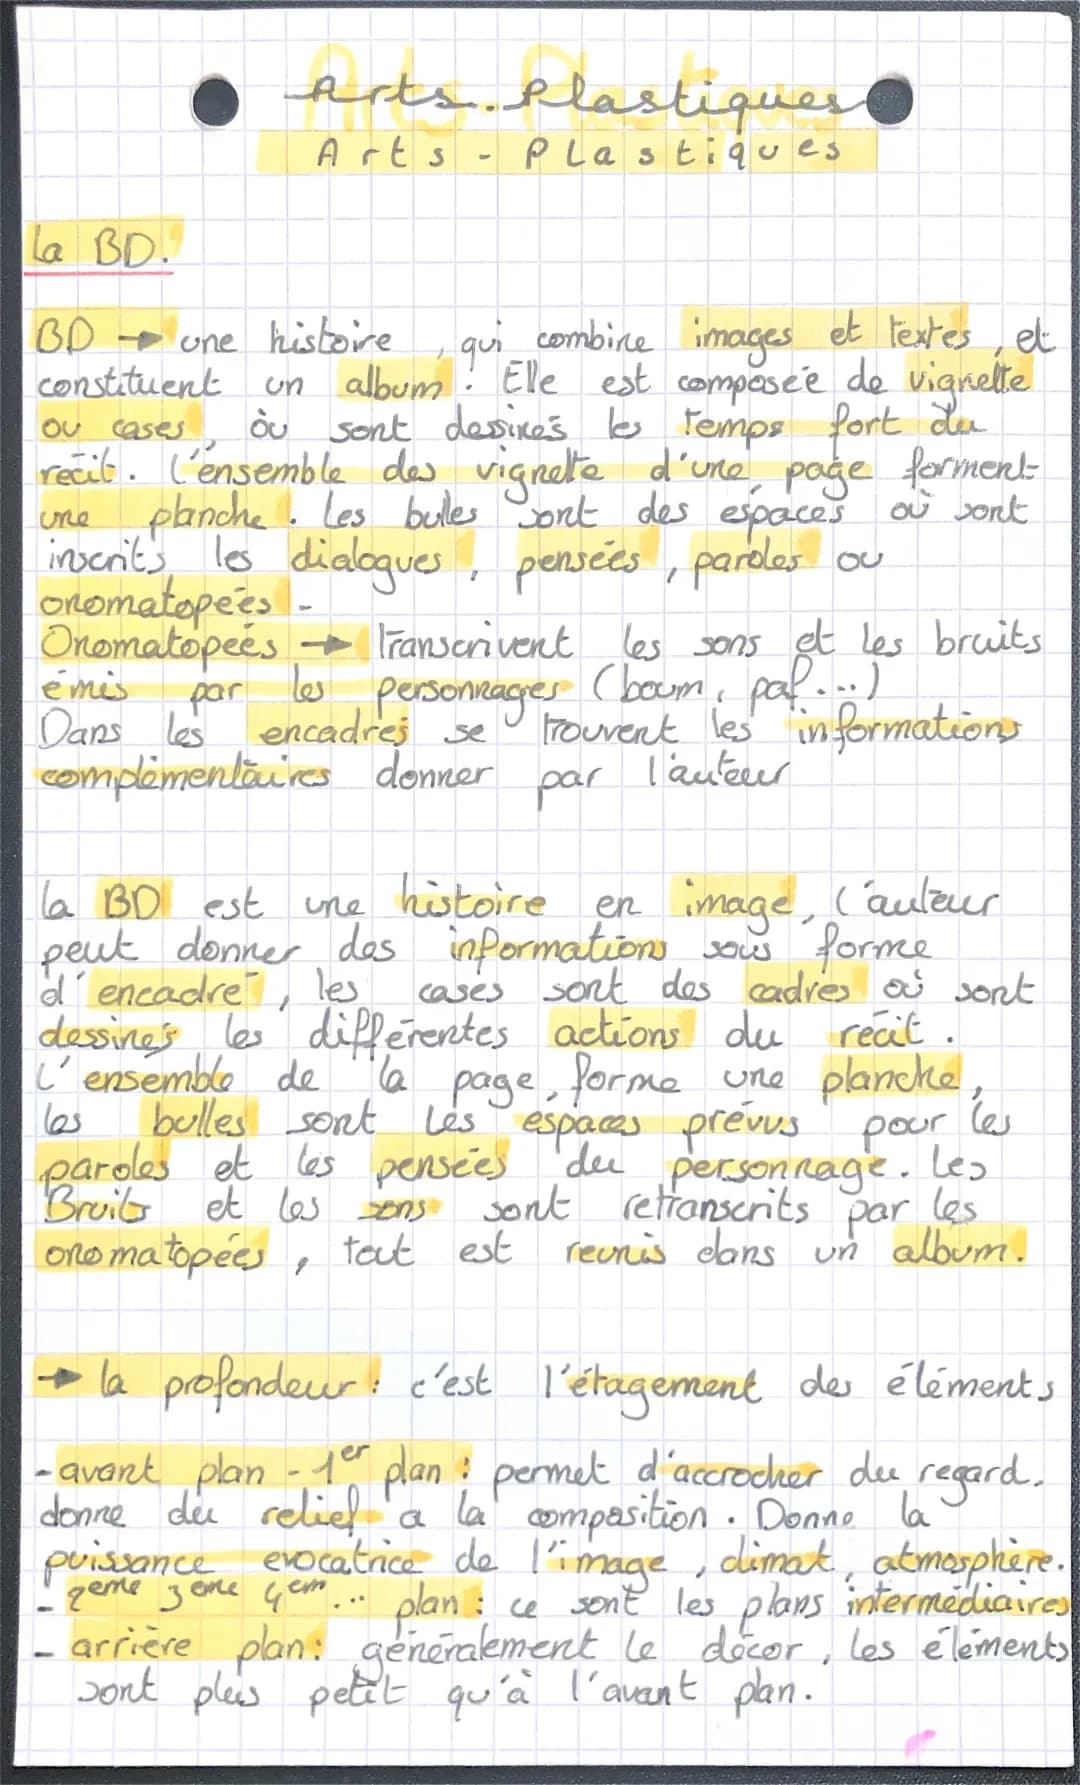 Arts-Plastiques
Arts-Plastiques
la BD.
BD → une histoire, qui combine images et textes, et
constituent un album. Elle est composée de vignette
ou cases, où sont dessinés les temps fort du
récit. L'ensemble des vignette d'une page forment
une planche. les bulles sont des espaces où sont
inscrits les dialogues, pensées, paroles ou
onomatopées.
Onomatopées → Transcrivent les sons et les bruits
émis par les personnages (boum, paf...)
Dans les encadrés se trouvent les informations
complémentaires donner par l'auteur
la BD est une histoire en image, l'auteur
peut donner des informations sous forme
d'encadré, les cases sont des cadres où sont
dessinés les différentes actions du récit.
L'ensemble de la page, forme une planche,
les bulles sont les espaces prévus pour les
paroles et les pensées du personnage. Les
Bruits et les sons sont retranscrits par les
onomatopées, tout est reunis dans un album.
→ la profondeur : c'est l'étagement des éléments
- avant plan - 1er plan : permet d'accrocher du regard.
donne du relief a la composition. Donne la
puissance evocatrice de l'image, climat, atmosphère.
- 2eme 3eme 4em... plan : ce sont les plans intermédiaires
- arrière plan : généralement le décor, les éléments
sont plus petit qu'à l'avant plan.